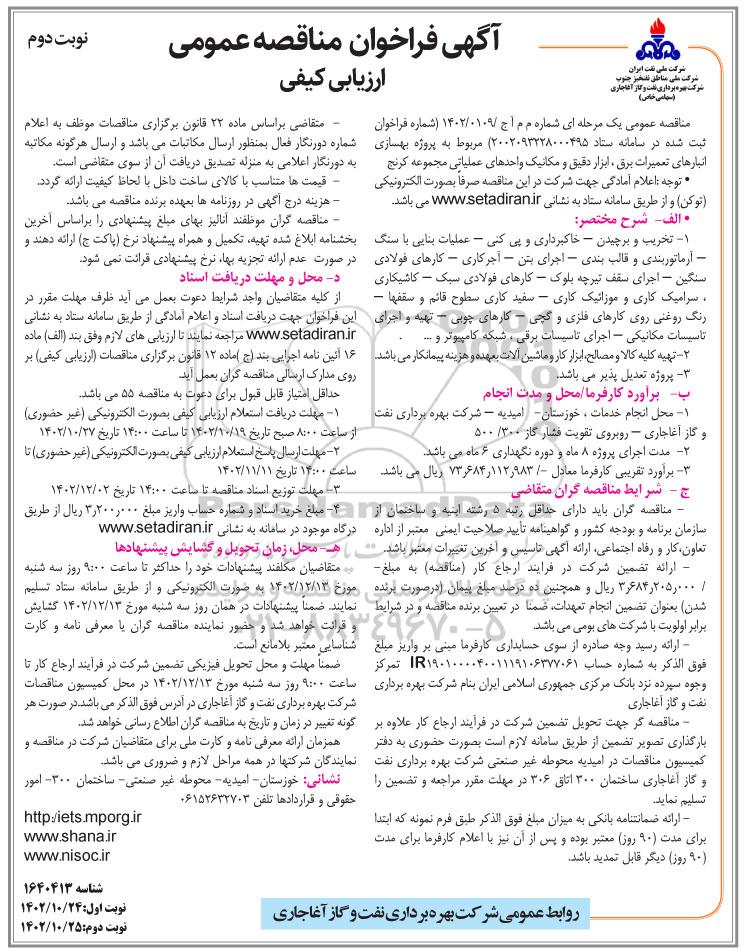 شرکت ملی نفت ایران
شرکت ملی مناطق نفتخیز جنوب
شرکت بهره برداری نفت و گاز آغاجاری
(سهامی خاص)
آگهی فراخوان مناقصه عمومی
ارزیابی کیفی
نوبت دوم
مناقصه عمومی یک مرحله ای شماره م م آ ج /۱۴۰۲/۰۱۰۹ (شماره فراخوان
ثبت شده در سامانه ستاد ۲۰۰۲۰۹۳۲۲۸۰۰۰۴۹۵) مربوط به پروژه بهسازی
انبارهای تعمیرات برق ، ابزار دقیق و مکانیک واحدهای عملیاتی مجموعه کرنج
• توجه :اعلام آمادگی جهت شرکت در این مناقصه صرفاً بصورت الکترونیکی
(توکن) و از طریق سامانه ستاد به نشانی www.setadiran.ir می باشد.
• الف- شرح مختصر:
۱- تخریب و برچیدن – خاکبرداری و پی کنی – عملیات بنایی با سنگ
– آرماتوربندی و قالب بندی – اجرای بتن – آجرکاری – کارهای فولادی
سنگین – اجرای سقف تیرچه بلوک – کارهای فولادی سبک – کاشیکاری
، سرامیک کاری و موزائیک کاری – سفید کاری سطوح قائم و سقفها –
رنگ روغنی روی کارهای فلزی و گچی – کارهای چوبی – تهیه و اجرای
تاسیسات مکانیکی – اجرای تاسیسات برقی ، شبکه کامپیوتر و ... .
۲-تهیه کلیه کالا و مصالح، ابزار کار و ماشین آلات بعهده و هزینه پیمانکار می باشد.
۳- پروژه تعدیل پذیر می باشد.
ب- برآورد کارفرما/محل و مدت انجام
۱- محل انجام خدمات ، خوزستان- امیدیه – شرکت بهره برداری نفت
و گاز آغاجاری – روبروی تقویت فشار گاز ۳۰۰/ ۵۰۰
۲- مدت اجرای پروژه ۸ ماه و دوره نگهداری ۶ ماه می باشد.
۳- برآورد تقریبی کارفرما معادل -/ ۷۳٫۶۸۴٫۱۱۲٫۹۸۳ ریال می باشد.
ج - شرایط مناقصه گران متقاضی
- مناقصه گران باید دارای حداقل رتبه ۵ رشته ابنیه و ساختمان از
سازمان برنامه و بودجه کشور و گواهینامه تأیید صلاحیت ایمنی معتبر از اداره
تعاون،کار و رفاه اجتماعی، ارائه آگهی تاسیس و آخرین تغییرات معتبر باشد.
- ارائه تضمین شرکت در فرآیند ارجاع کار (مناقصه) به مبلغ-
/ ۳٫۶۸۴٫۲۰۵٫۰۰۰ ریال و همچنین ده درصد مبلغ پیمان (درصورت برنده
شدن) بعنوان تضمین انجام تعهدات، ضمنا در تعیین برنده مناقصه و در شرایط
برابر اولویت با شرکت های بومی می باشد.
- ارائه رسید وجه صادره از سوی حسابداری کارفرما مبنی بر واریز مبلغ
فوق الذکر به شماره حساب IR۱۹۰۱۰۰۰۰۴۰۰۱۱۱۹۱۰۶۳۷۷۰۶۱ تمرکز
وجوه سپرده نزد بانک مرکزی جمهوری اسلامی ایران بنام شرکت بهره برداری
نفت و گاز آغاجاری
- مناقصه گر جهت تحویل تضمین شرکت در فرآیند ارجاع کار علاوه بر
بارگذاری تصویر تضمین از طریق سامانه لازم است بصورت حضوری به دفتر
کمیسیون مناقصات در امیدیه محوطه غیر صنعتی شرکت بهره برداری نفت
و گاز آغاجاری ساختمان ۳۰۰ اتاق ۳۰۶ در مهلت مقرر مراجعه و تضمین را
تسلیم نماید.
- ارائه ضمانتنامه بانکی به میزان مبلغ فوق الذکر طبق فرم نمونه که ابتدا
برای مدت (۹۰ روز) معتبر بوده و پس از آن نیز با اعلام کارفرما برای مدت
(۹۰ روز) دیگر قابل تمدید باشد.
- متقاضی براساس ماده ۲۲ قانون برگزاری مناقصات موظف به اعلام
شماره دورنگار فعال بمنظور ارسال مکاتبات می باشد و ارسال هرگونه مکاتبه
به دورنگار اعلامی به منزله تصدیق دریافت آن از سوی متقاضی است.
- قیمت ها متناسب با کالای ساخت داخل با لحاظ کیفیت ارائه گردد.
- هزینه درج آگهی در روزنامه ها بعهده برنده مناقصه می باشد.
- مناقصه گران موظفند آنالیز بهای مبلغ پیشنهادی را براساس آخرین
بخشنامه ابلاغ شده تهیه، تکمیل و همراه پیشنهاد نرخ (پاکت ج) ارائه دهند و
در صورت عدم ارائه تجزیه بها، نرخ پیشنهادی قرائت نمی شود.
د- محل و مهلت دریافت اسناد
از کلیه متقاضیان واجد شرایط دعوت بعمل می آید ظرف مهلت مقرر در
این فراخوان جهت دریافت اسناد و اعلام آمادگی از طریق سامانه ستاد به نشانی
www.setadiran.ir مراجعه نمایند تا ارزیابی های لازم وفق بند (الف) ماده
۱۶ آئین نامه اجرایی بند (ج )ماده ۱۲ قانون برگزاری مناقصات (ارزیابی کیفی) بر
روی مدارک ارسالی مناقصه گران بعمل آید.
حداقل امتیاز قابل قبول برای دعوت به مناقصه ۵۵ می باشد.
۱- مهلت دریافت استعلام ارزیابی کیفی بصورت الکترونیکی (غیر حضوری)
از ساعت ۸:۰۰ صبح تاریخ ۱۴۰۲/۱۰/۱۹ تا ساعت ۱۴:۰۰ تاریخ ۱۴۰۲/۱۰/۲۷
۲-مهلت ارسال پاسخ استعلام ارزیابی کیفی بصورت الکترونیکی (غیر حضوری) تا
ساعت ۱۴:۰۰ تاریخ ۱۴۰۲/۱۱/۱۱
۳- مهلت توزیع اسناد مناقصه تا ساعت ۱۴:۰۰ تاریخ ۱۴۰۲/۱۲/۰۲
۴- مبلغ خرید اسناد و شماره حساب واریز مبلغ ۳٫۲۰۰٫۰۰۰ ریال از طریق
درگاه موجود در سامانه به نشانی www.setadiran.ir
هـ- محل، زمان تحویل و گشایش پیشنهادها
متقاضیان مکلفند پیشنهادات خود را حداکثر تا ساعت ۹:۰۰ روز سه شنبه
مورخ ۱۴۰۲/۱۲/۱۳ به صورت الکترونیکی و از طریق سامانه ستاد تسلیم
نمایند. ضمنا پیشنهادات در همان روز سه شنبه مورخ ۱۴۰۲/۱۲/۱۳ گشایش
و قرائت خواهد شد و حضور نماینده مناقصه گران یا معرفی نامه و کارت
شناسایی معتبر بلامانع است.
ضمناً مهلت و محل تحویل فیزیکی تضمین شرکت در فرآیند ارجاع کار تا
ساعت ۹:۰۰ روز سه شنبه مورخ ۱۴۰۲/۱۲/۱۳ در محل کمیسیون مناقصات
شرکت بهره برداری نفت و گاز آغاجاری در آدرس فوق الذکر می باشد.در صورت هر
گونه تغییر در زمان و تاریخ به مناقصه گران اطلاع رسانی خواهد شد.
همزمان ارائه معرفی نامه و کارت ملی برای متقاضیان شرکت در مناقصه و
نمایندگان شرکتها در همه مراحل لازم و ضروری می باشد.
نشانی: خوزستان- امیدیه- محوطه غیر صنعتی- ساختمان ۳۰۰- امور
حقوقی و قراردادها تلفن ۰۶۱۵۲۶۳۲۷۰۳
http:/iets.mporg.ir
www.shana.ir
www.nisoc.ir
شناسه ۱۶۴۰۴۱۳
نوبت اول:۱۴۰۲/۱۰/۲۴
نوبت دوم:۱۴۰۲/۱۰/۲۵
روابط عمومی شرکت بهره برداری نفت و گاز آغاجاری